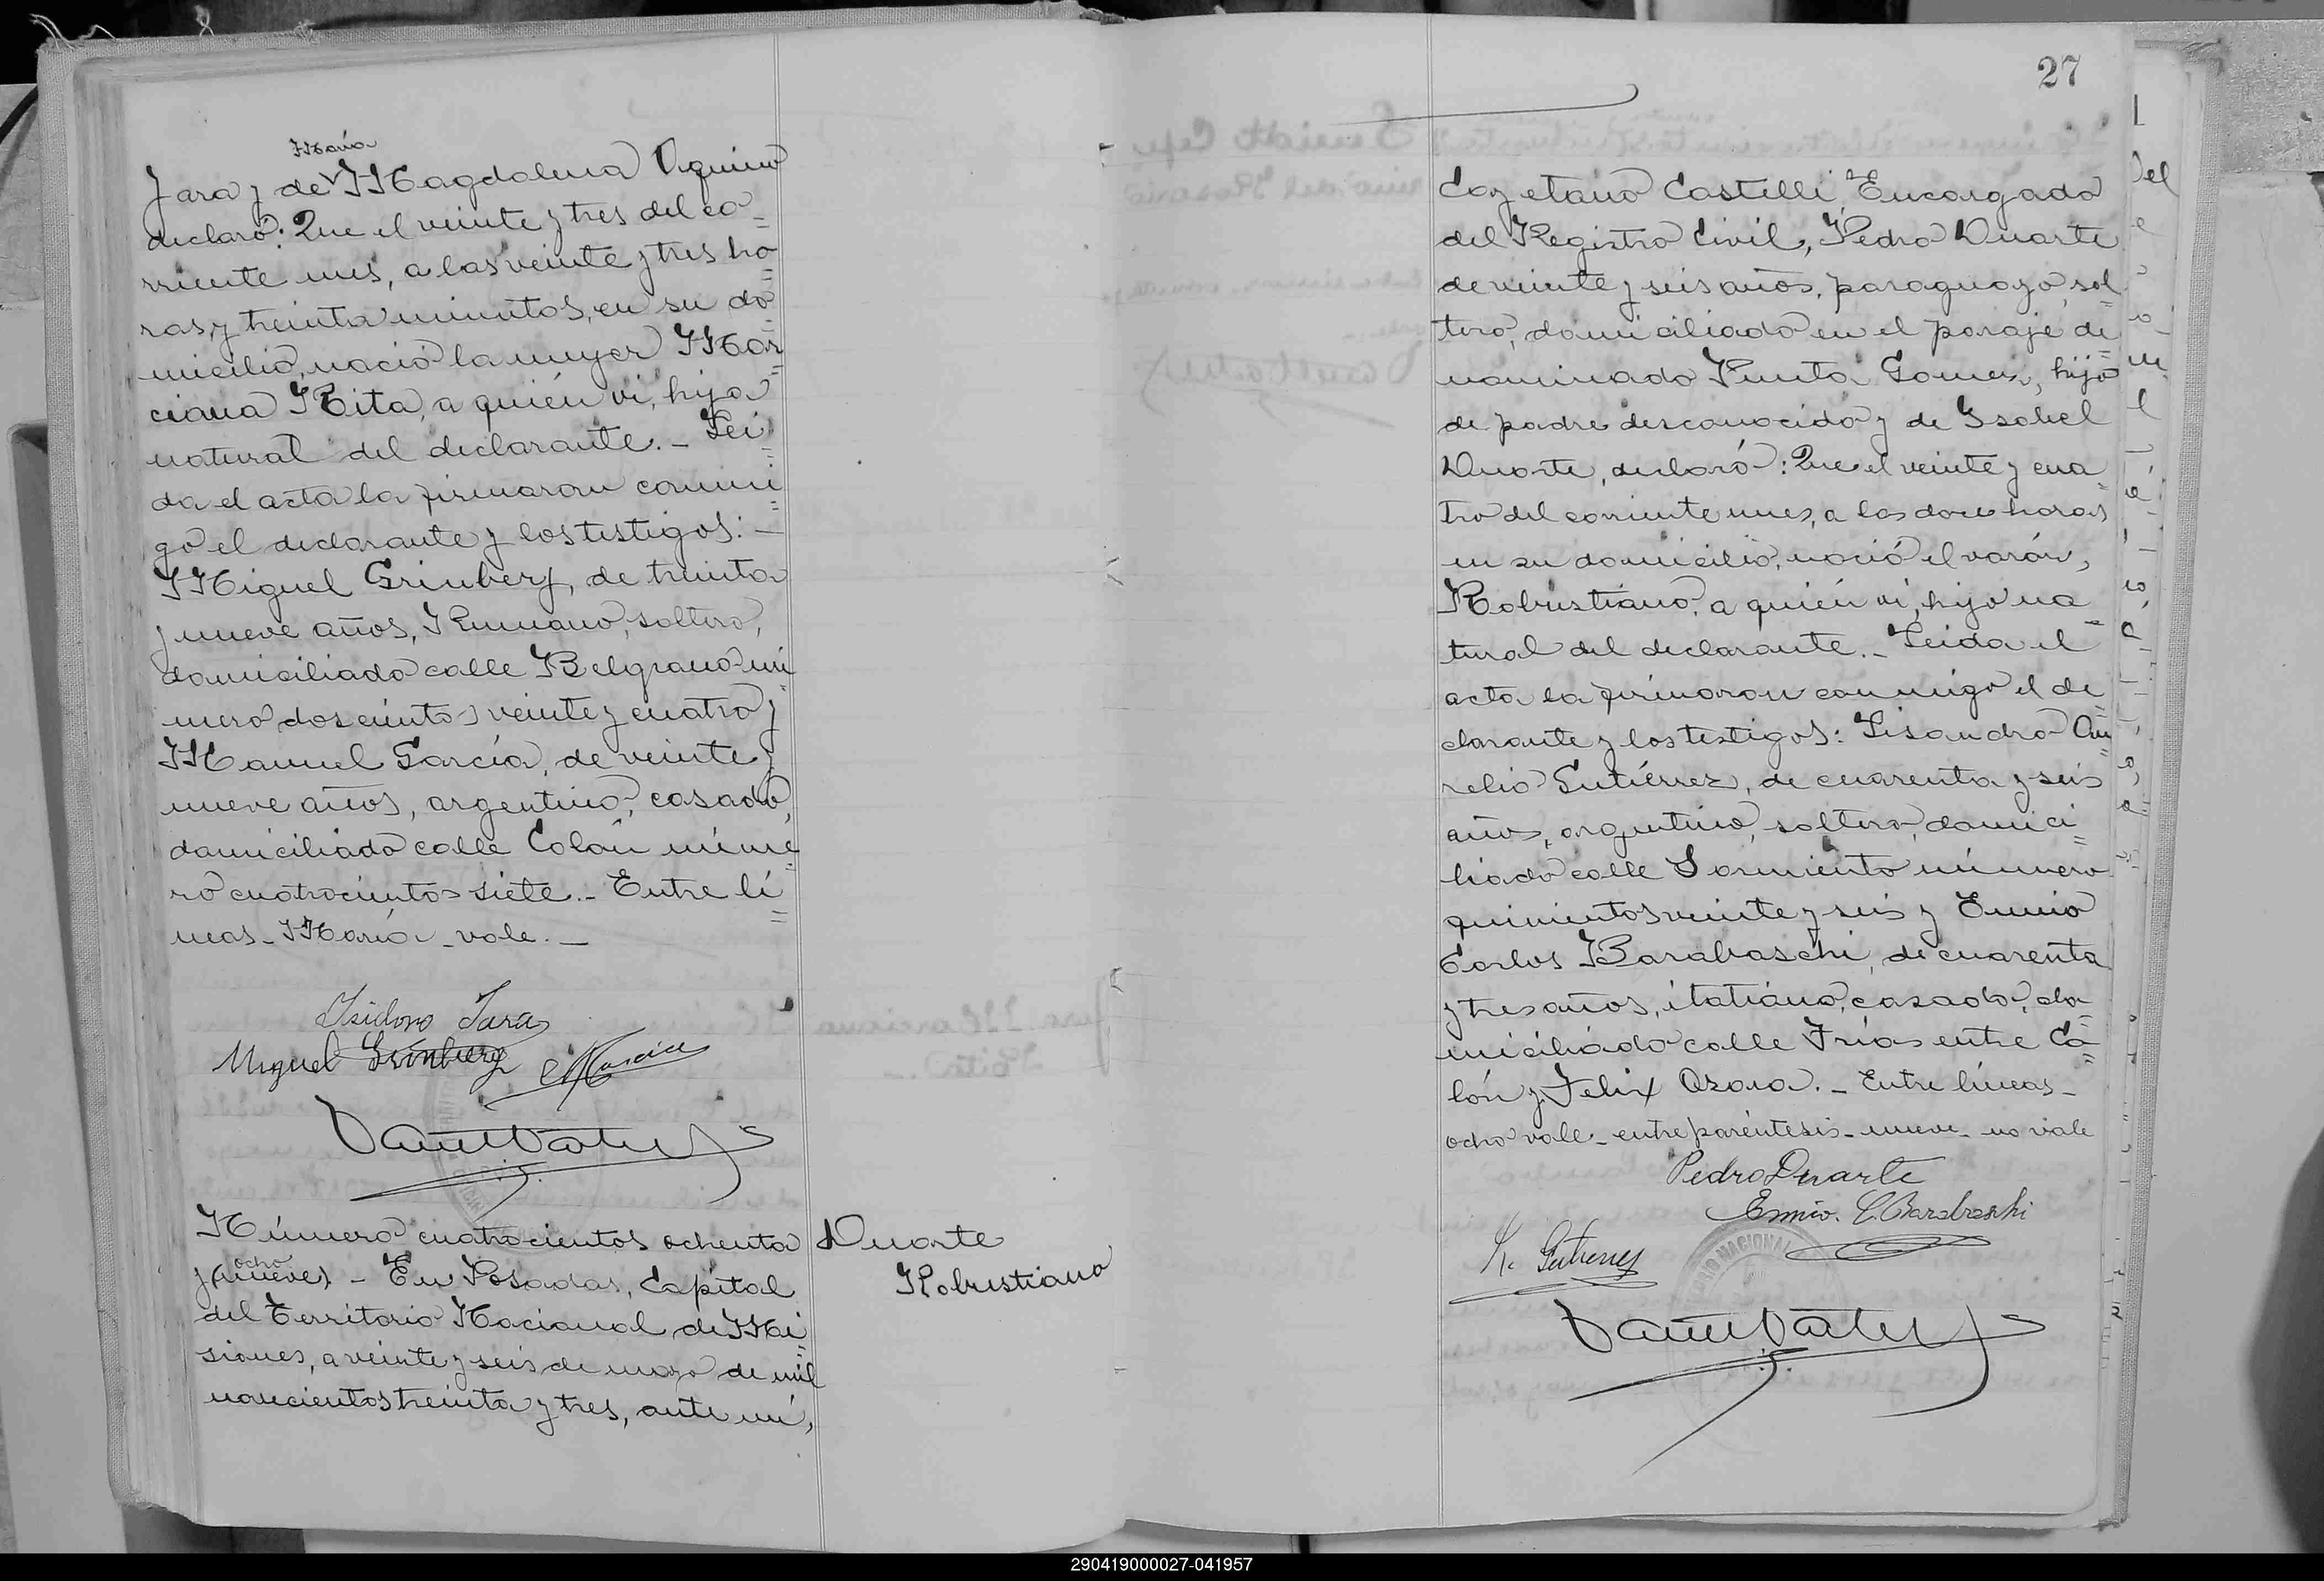 María
Jara y de Magdalena Aquino
declaró: Que el veinte y tres del co=
rriente mes, a las veinte y tres ho=
ras y treinta minutos, en su do=
micilio, nació la mujer Mar=
ciana Rita, a quién vi, hija
natural del declarante.- Lei=
da el acta la firmaron conmi=
go el declarante y los testigos:-
Miguel Grinberg, de treinta
y nueve años, Rumano, soltero,
domiciliado calle Belgrano nú=
mero doscientos veinte y cuatro y
Manuel García, de veinte y
nueve años, argentino, casado,
domiciliado calle Colón núme=
ro cuatrocientos siete.- Entre lí=
neas - María - vale.-
Isidoro Jara
Miguel Grinberg MGarcia
Número cuatrocientos ochenta
ocho
y (nueve) - En Posadas, Capital
del Territorio Nacional de Mi=
siones, a veinte y seis de mayo de mil
novecientos treinta y tres, ante mí,
Duarte
Robustiano
27
Cayetano Castelli, Encargado
del Registro Civil, Pedro Duarte
de veinte y seis años, paraguayo, sol=
tero, domiciliado en el paraje de=
nominado Punta Gomez, hijo
de padre desconocido y de Isabel
Duarte, declaró: Que el veinte y cua=
tro del corriente mes, a las doce horas
en su domicilio, nació el varón,
Robustiano, a quién vi, hijo na=
tural del declarante.- Leida el
acta la firmaron conmigo el de=
clarante y los testigos: Lisandro Au=
relio Gutiérrez, de cuarenta y seis
años, argentino, soltero, domici=
liado calle Sarmiento número
quinientos veinte y seis y Ennio
Carlos Barabaschi, de cuarenta
y tres años, italiano, casado, do=
miciliado calle Frías entre Co=
lón y Felix Azara.- Entre líneas -
ocho vale - entre paréntesis - nueve - no vale
Pedro Duarte
Ennio. C. Barabaschi
Gutierrez
290419000027-041957